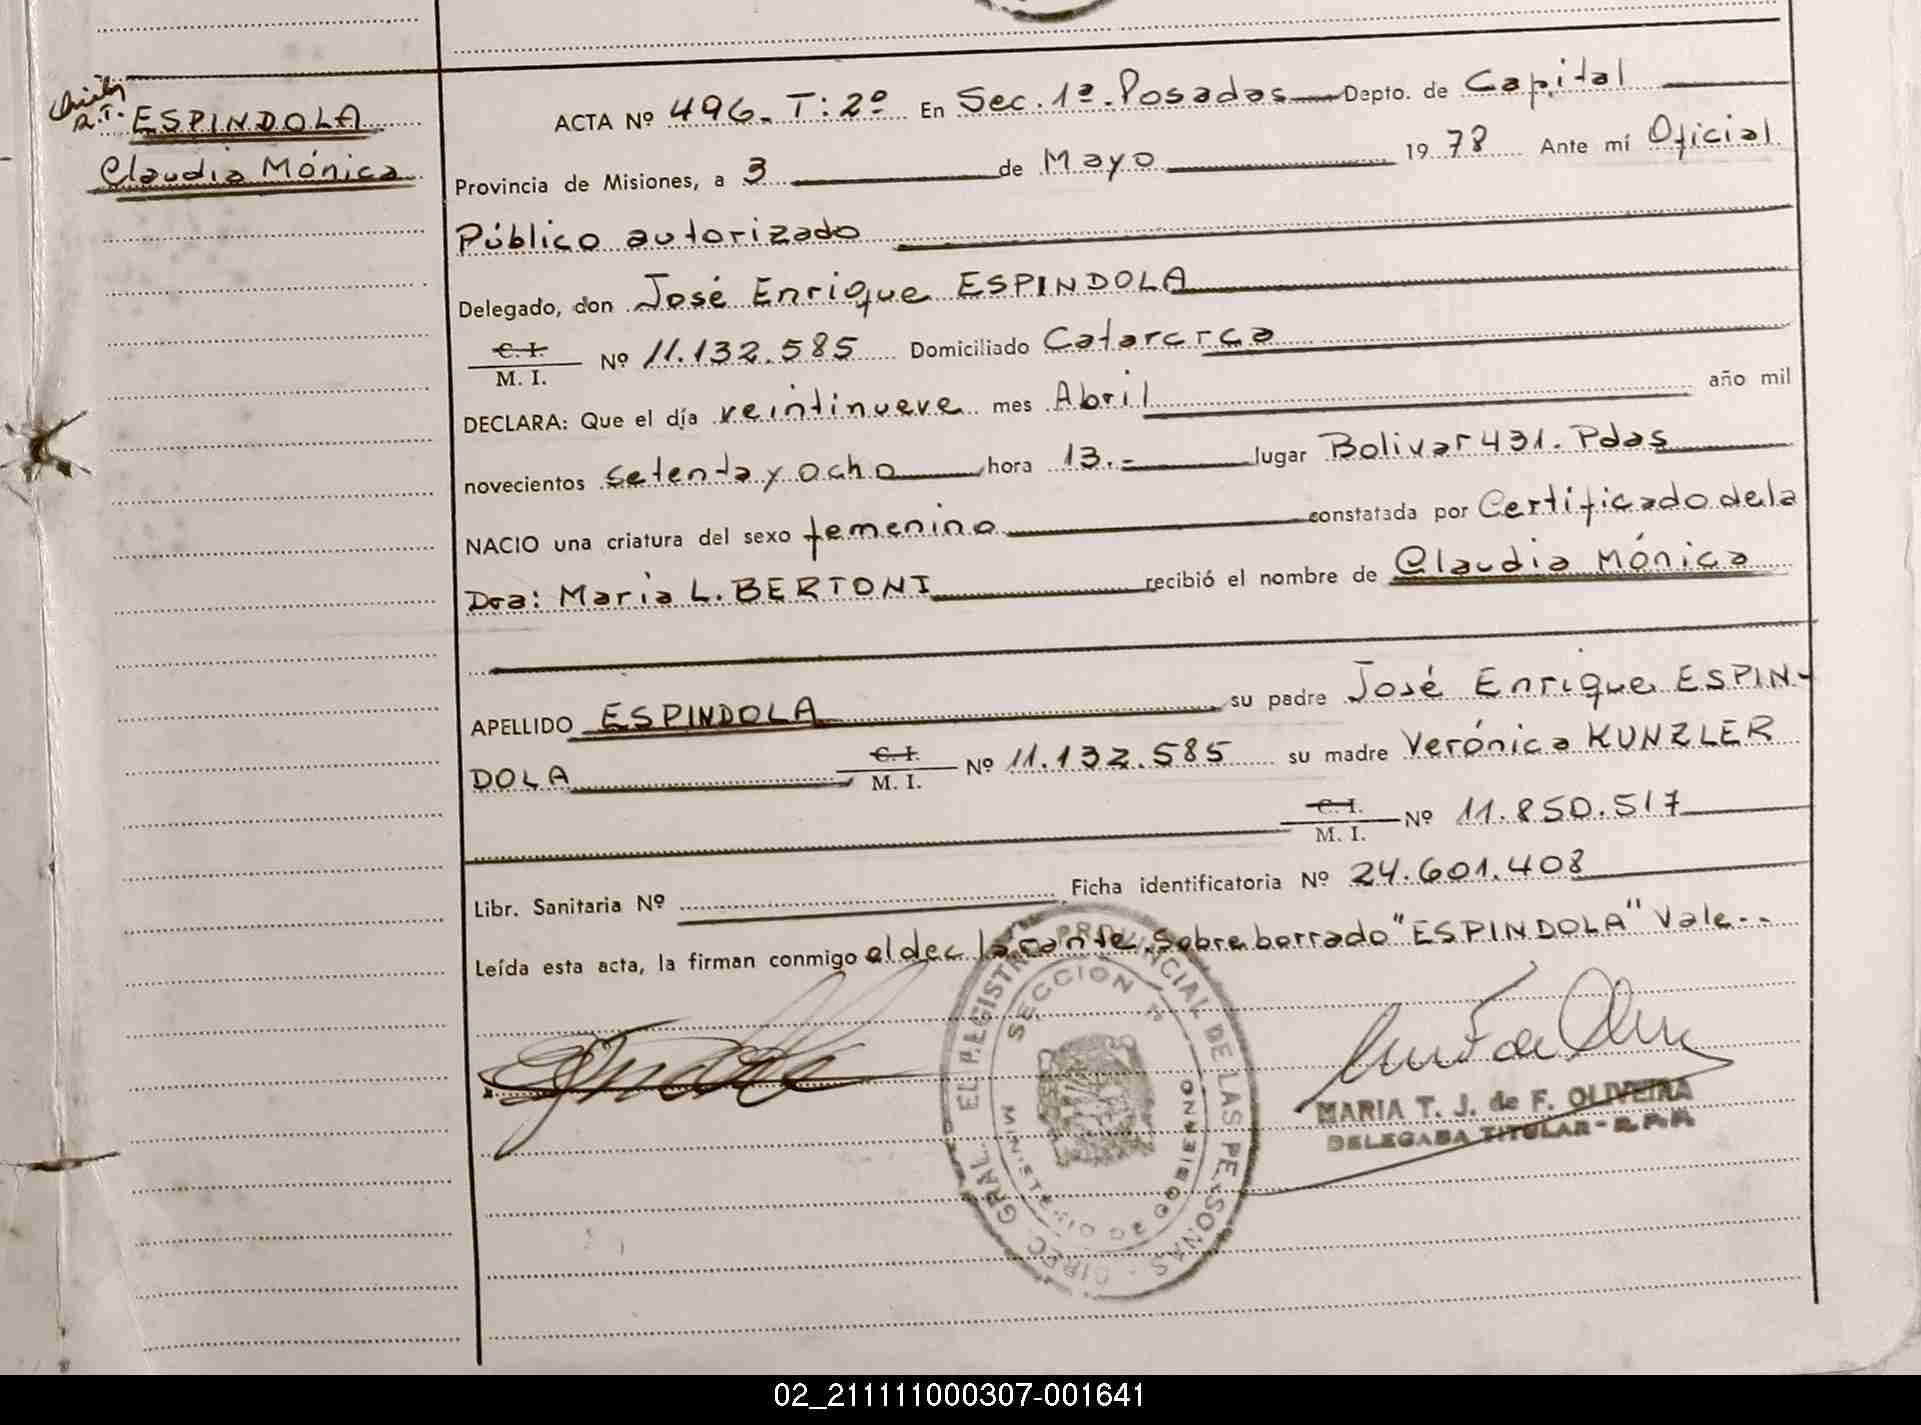 ESPINDOLA
Claudia Mónica
ACTA Nº 496. T: 2º En Sec. 1ª. Posadas Depto. de Capital
Provincia de Misiones, a 3 de Mayo 1978 Ante mí Oficial
Público autorizado
Delegado, don José Enrique ESPINDOLA
C. I.
M. I. Nº 11.132.585 Domiciliado Catarcrca
DECLARA: Que el día veintinueve mes Abril año mil
novecientos setenta y ocho hora 13.- lugar Bolivar 431. Pdas
NACIO una criatura del sexo femenino constatada por Certificado de la
Dra: Maria L. BERTONI recibió el nombre de Claudia Mónica
APELLIDO ESPINDOLA su padre José Enrique ESPIN-
DOLA C. I. M. I. Nº 11.132.585 su madre Verónica KUNZLER
C. I. M. I. Nº 11.850.517
Libr. Sanitaria Nº Ficha identificatoria Nº 24.601.408
Leída esta acta, la firman conmigo el declarante. Sobre borrado "ESPINDOLA" Vale.-
DIREC. GRAL. EL REGISTRO PROVINCIAL DE LAS PERSONAS
SECCION 1ª
MINISTERIO DE GOBIERNO
MARIA T. J. de F. OLIVEIRA
DELEGADA TITULAR - R.P.P.
02_211111000307-001641